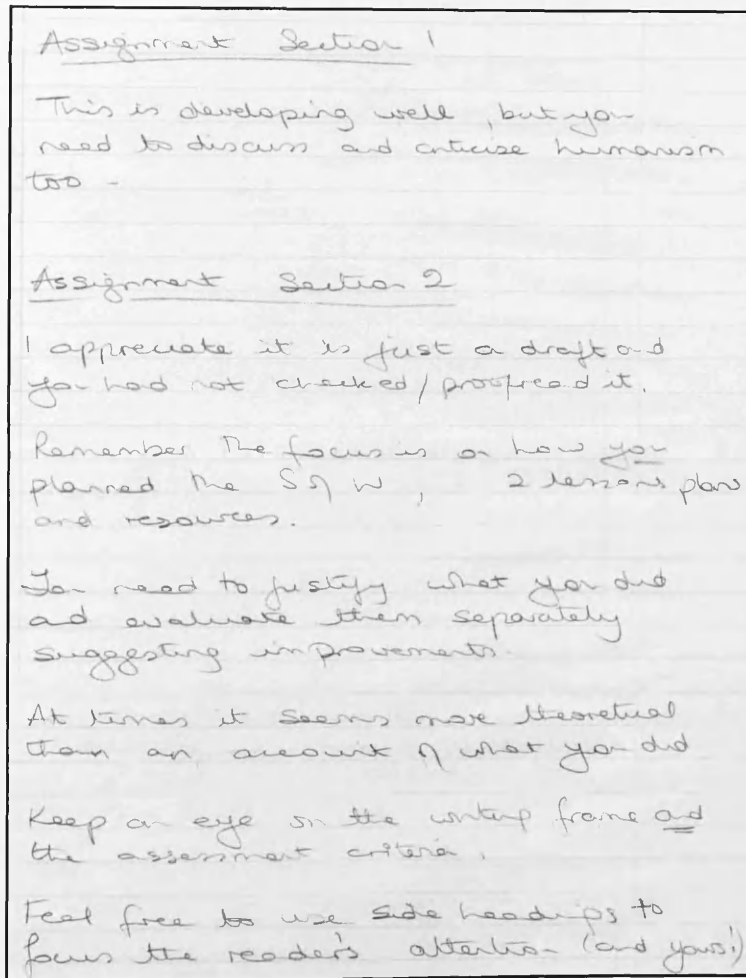 Assignment Section 1
This is developing well, but you
need to discuss and criticise humanism
too -
Assignment Section 2
I appreciate it is just a draft and
you had not checked/proofread it.
Remember the focus is on how you
planned the S of W, 2 lessons plans
and resources.
You need to justify what you did
and evaluate them separately
suggesting improvements.
At times it seems more theoretical
than an account of what you did
Keep an eye on the writing frame and
the assessment criteria.
Feel free to use side headings to
focus the reader's attention (and yours!)